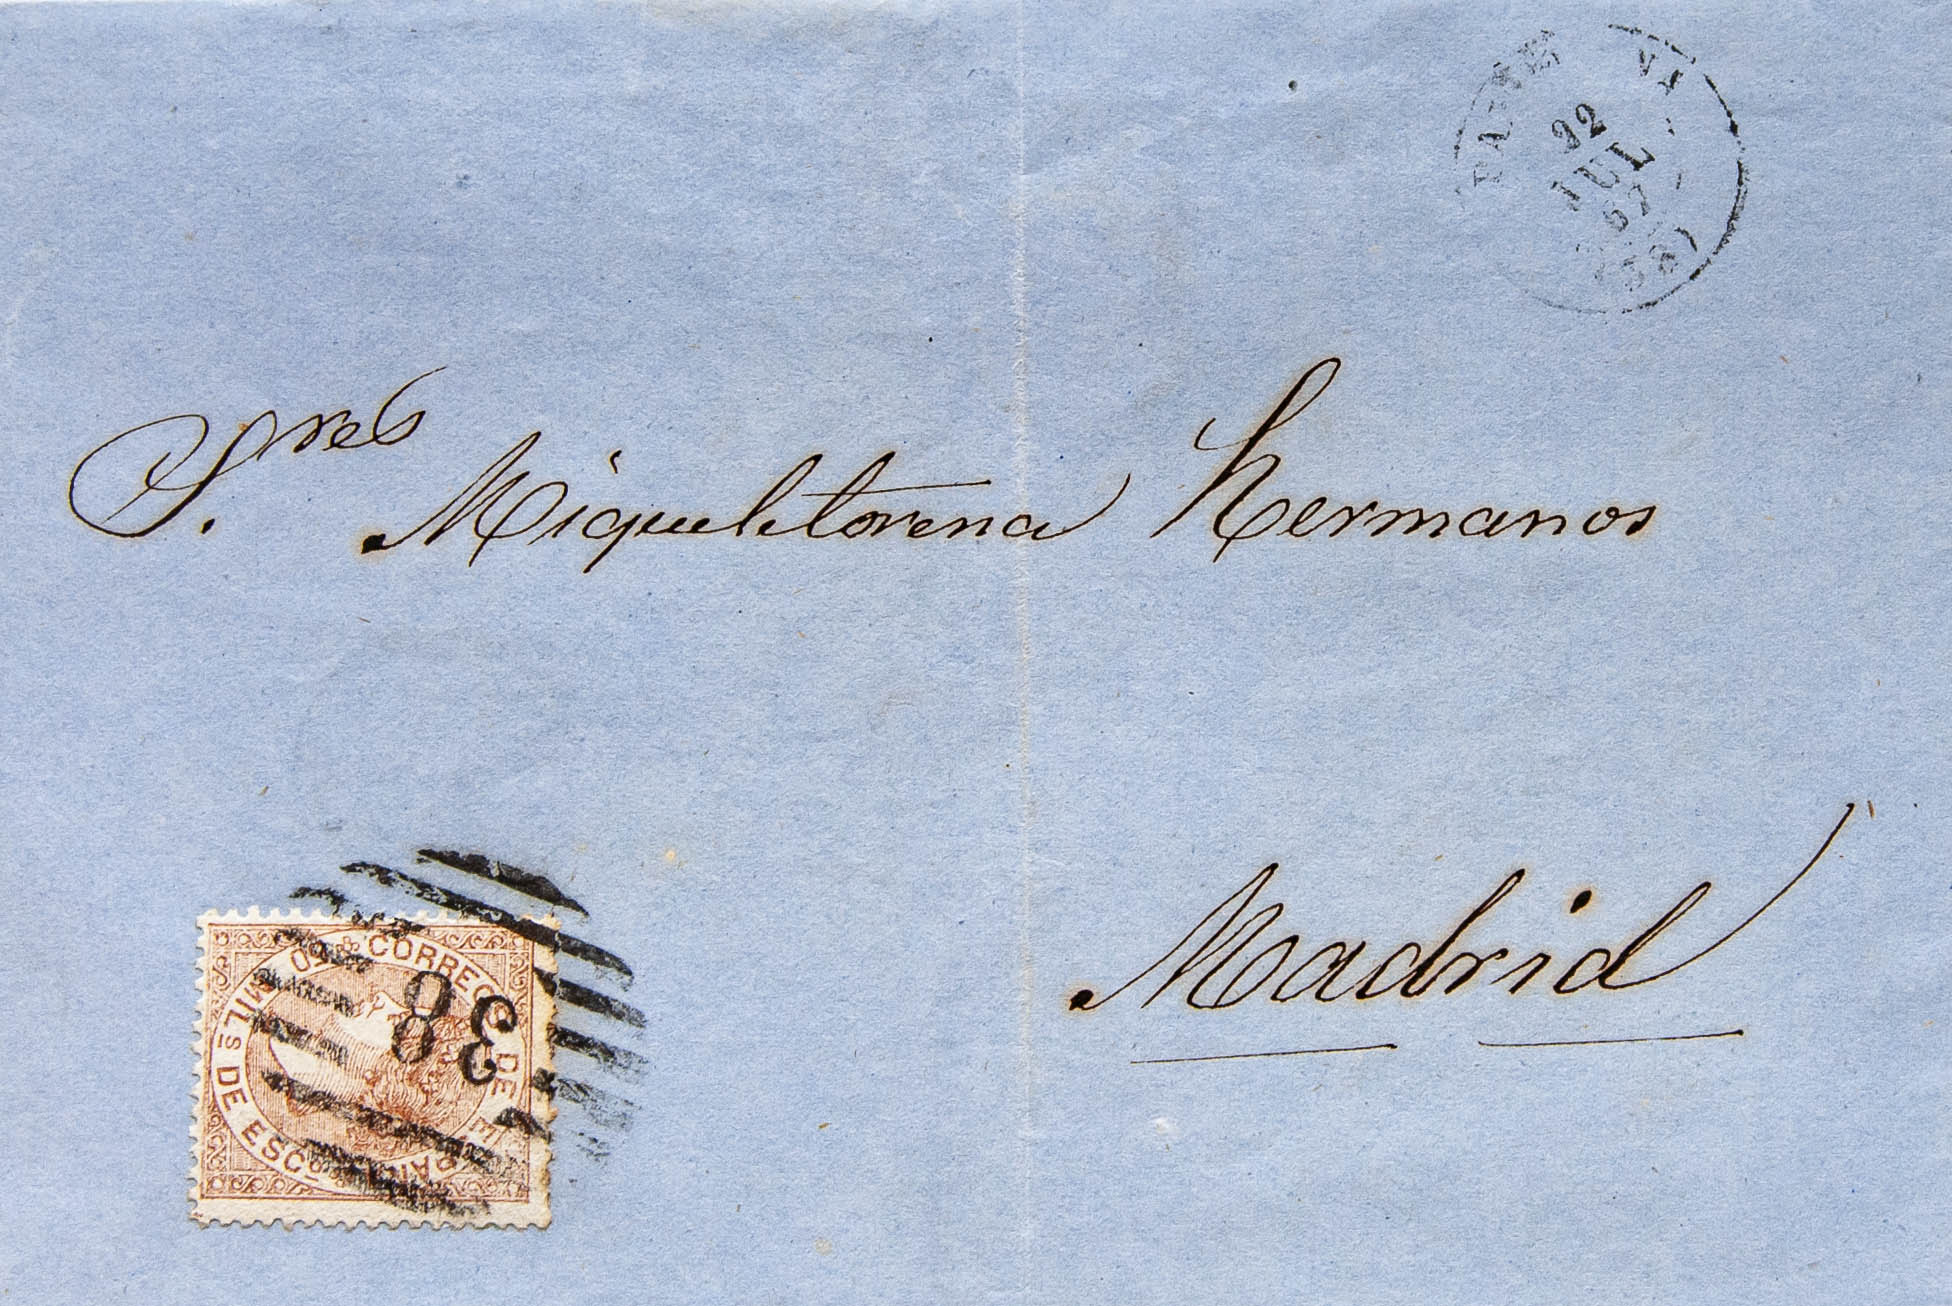 22
JUL
67
S.res Miqueletorena Hermanos
Madrid
CORREOS DE ESPAÑA
50 MIL.s DE ESC.o
38